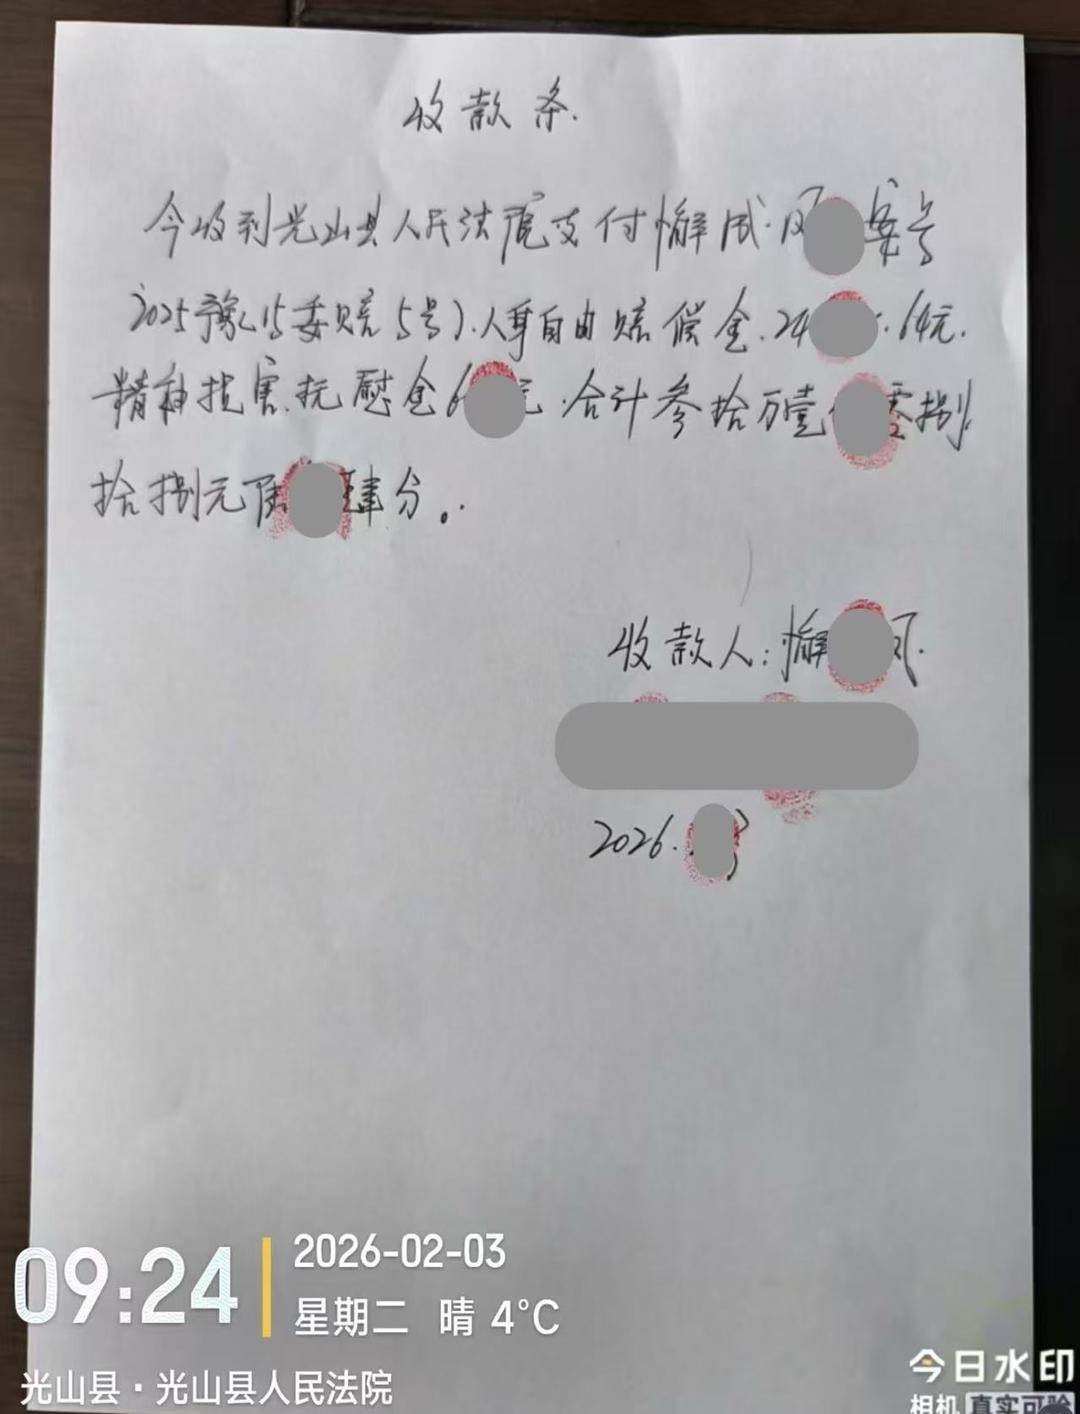 收款条.
今收到光山县人民法院支付懈成凤案号
2025豫15委赔5号).人身自由赔偿金.24.64元.
精神损害.抚慰金6元.合计参拾万壹零捌
拾捌元陆肆分。
收款人:懈凤.
2026.
09:24
2026-02-03
星期二 晴 4°C
光山县·光山县人民法院
今日水印
相机 真实可验